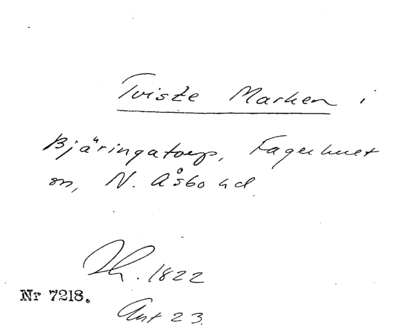 Tviste Marken i
Bjäringatorp, Fagerhult
sn, N. Åsbo hd.
Th. 1822
Nr 7218.
Ant 23.